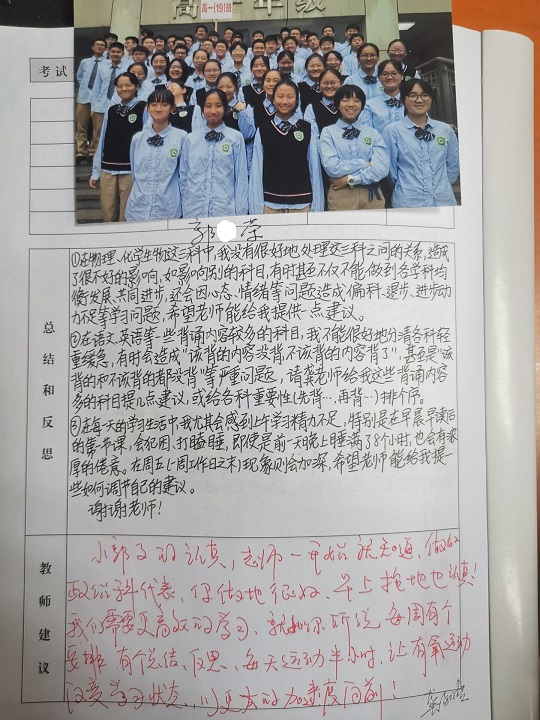 高一年级
高一(19)班
考试
郭 荣
总结和反思
①在物理、化学生物这三科中,我没有很好地处理这三科之间的关系,造成
了很不好的影响,如影响别的科目,有时甚至不仅不能做到各学科均
衡发展、共同进步,还会因心态、情绪等问题造成偏科、退步、进步动
力不足等学习问题,希望老师能给我提供一点建议。
②在语文、英语等一些背诵内容较多的科目,我不能很好地分清各种轻
重缓急,有时会造成“该背的内容没背,不该背的内容背了”,甚至是“该
背的和不该背的都没背”等严重问题,请龚老师给我这些背诵内容
多的科目提点建议,或给各科重要性(先背…,再背…)排个序。
③在每一天的学习生活中,我尤其会感到上午学习精力不足,特别是在早晨早读后
的第一节课,会犯困、打瞌睡,即使是前一天晚上睡满了8个小时,也会有浓
厚的倦意。在周五(一周工作日之末)现象则会加深,希望老师能给我提一
些如何调节自己的建议。
谢谢老师!
教师建议
小郭子的认真,老师一开始就知道,做的
政治科代表,你做地很好,早上拖地也认真!
我们需要更高效的学习,就如你所说,每周有个
安排,有个总结、反思,每天运动半小时,让有氧运动
学习状态,以更大的加速度向前!